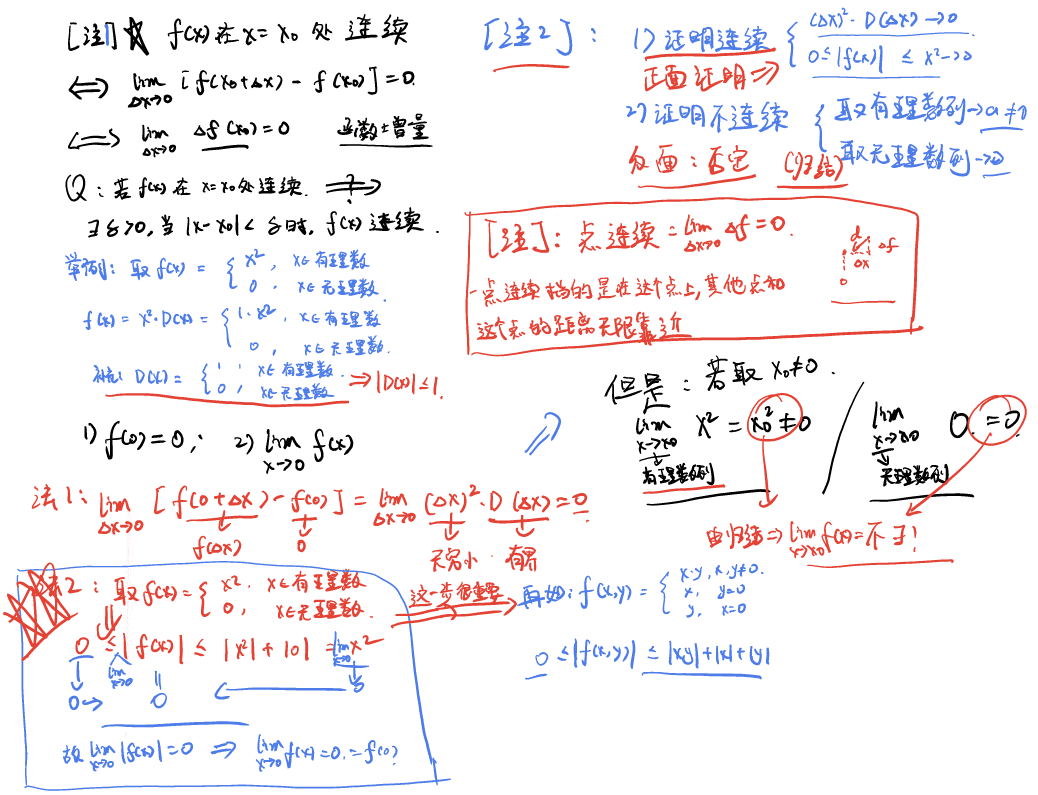 [注] ★ f(x)在x=x₀处连续
⟺ lim Δx→0 [f(x₀+Δx) - f(x₀)]=0.
⟺ lim Δx→0 Δf(x₀)=0 函数增量
Q: 若f(x)在x=x₀处连续. ⟹?
∃δ>0, 当|x-x₀|<δ时, f(x)连续.
举例: 取f(x) = { x², x∈有理数
0, x∈无理数.
f(x)=x²·D(x)= { 1·x², x∈有理数
0, x∈无理数.
补充: D(x)= { 1, x∈有理数.
0, x∈无理数 ⟹|D(x)|≤1.
1) f(0)=0; 2) lim x→0 f(x)
法1: lim Δx→0 [f(0+Δx)-f(0)] = lim Δx→0 (Δx)²·D(Δx)=0.
f(Δx) 0 无穷小·有界
法2: 取f(x)= { x², x∈有理数
0, x∈无理数.
0 ≤|f(x)| ≤ |x²|+|0| = lim x→0 x²
lim x→0
0→ 0 0
故 lim x→0 |f(x)|=0 ⟹ lim x→0 f(x)=0.=f(0)
这一步很重要
[注2]:
1) 证明连续 { (Δx)²·D(Δx)→0
0≤|f(x)| ≤ x²→0
正面证明⟹
2) 证明不连续 { 取有理数列→a≠0
取无理数列→0
反面: 否定 (归结)
[注]: 点连续 = lim Δx→0 Δf=0.
Δf
Δx
一点连续指的是在这个点上,其他点和
这个点的距离无限靠近
但是: 若取x₀≠0.
lim x→x₀ x² = x₀²≠0 / lim x→x₀ 0.=0.
有理数列 无理数列
由归结⟹ lim x→x₀ f(x)=不∃!
再如: f(x,y)= { x·y, x,y≠0.
x, y=0
y, x=0
0 ≤|f(x,y)| ≤ |xy|+|x|+|y|